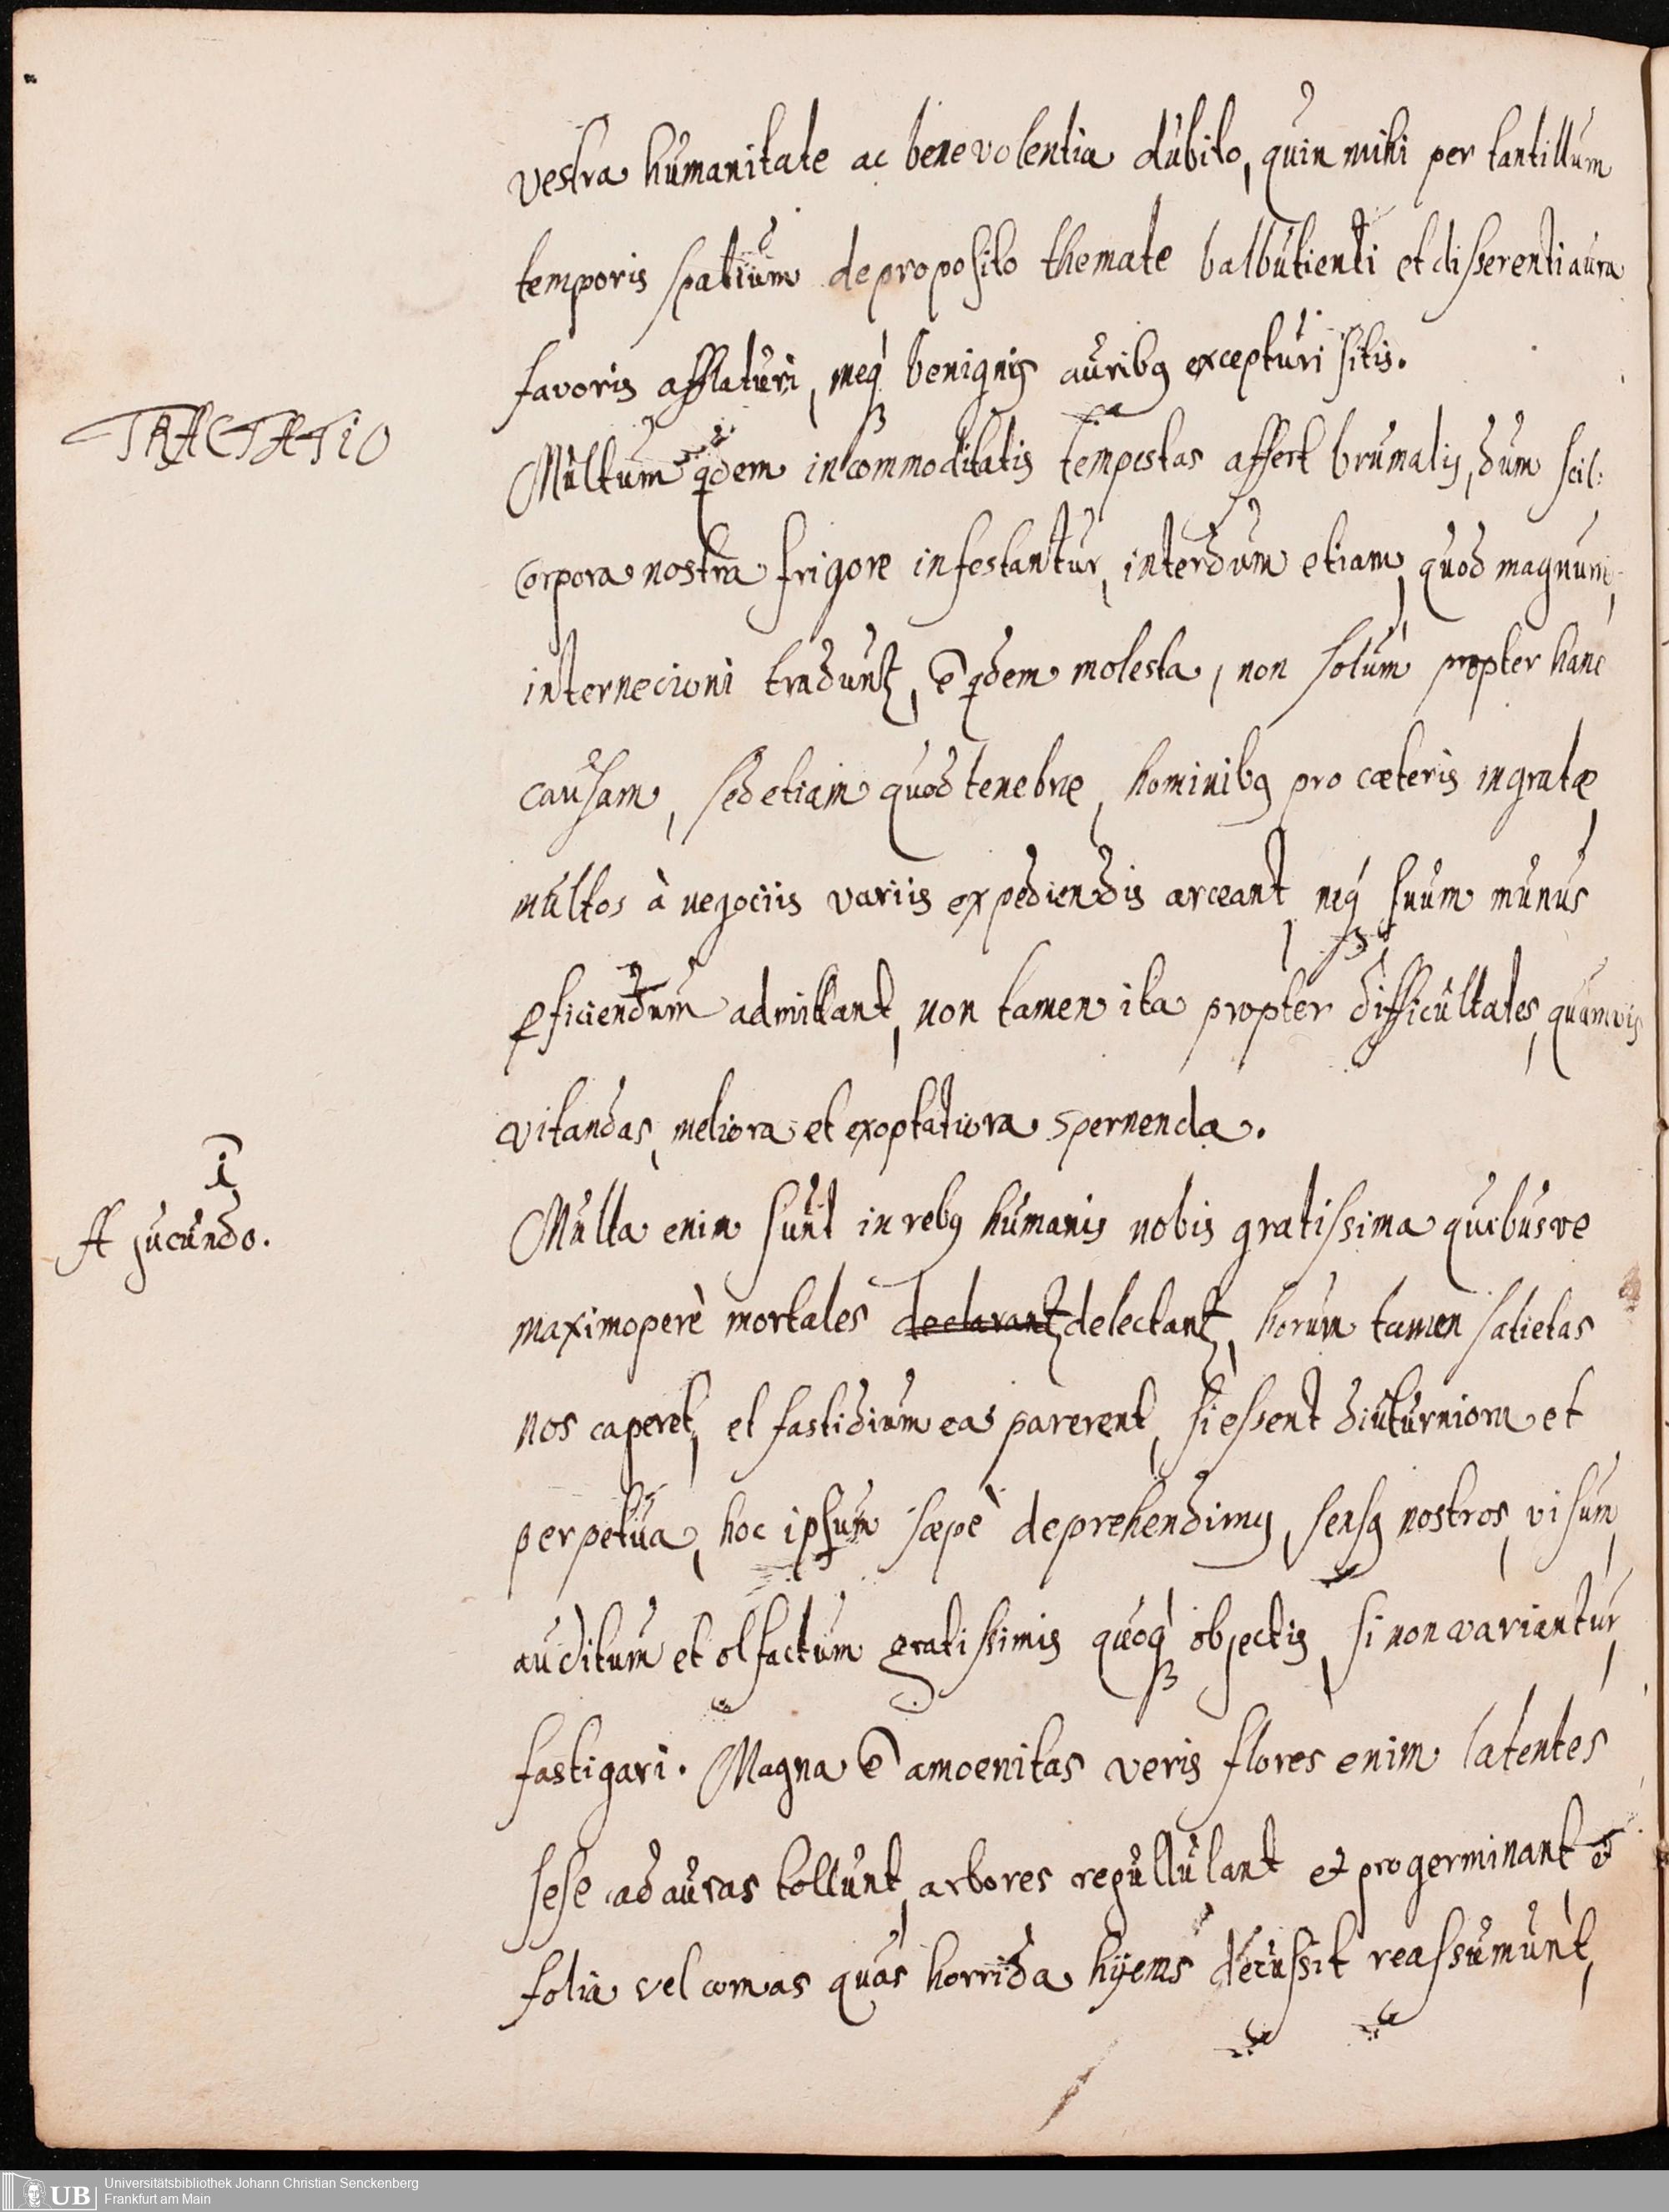 vestra humanitate ac benevolentia dubito, quin mihi per tantillum
temporis spatium de proposito themate balbutienti et disserenti aura
favoris afflaturi, meq́ꝫ benignis auribꝰ excepturi sitis.
TRACTATIO
Multum qdem incommoditatis tempestas affert brumalis, dum scil:
corpora nostra frigore infestantur, interdum etiam, quod magnum,
internecioni tradunt̃, ẽ qdem molesta, non solum propter hanc
causam, sed etiam quod tenebræ, hominibꝰ pro cæteris ingratæ,
multos à negociis variis expediendis arceant, neq́ꝫ suum munus
ꝑficiendum admittant, non tamen ita propter difficultates, quamvis
vitandas, meliora et exoptatiora spernenda.
i
A jucundo.
Multa enim sunt in rebꝰ humanis nobis gratissima quibusve
maximoperè mortales declarant̃ delectant̃, horum tamen satietas
nos caperet, et fastidium ea parerent, si essent diuturniora et
perpetua, hoc ipsum sæpè deprehendimꝰ, sensꝰ nostros, visum,
auditum et olfactum gratissimis quoq́ꝫ objectis, si non variantur,
fastigari. Magna ẽ amoenitas veris flores enim latentes
sese ad auras tollunt, arbores repullulant et progerminant et
folia vel comas quas horrida hyems decussit reassumunt,
Universitätsbibliothek Johann Christian Senckenberg
UB Frankfurt am Main